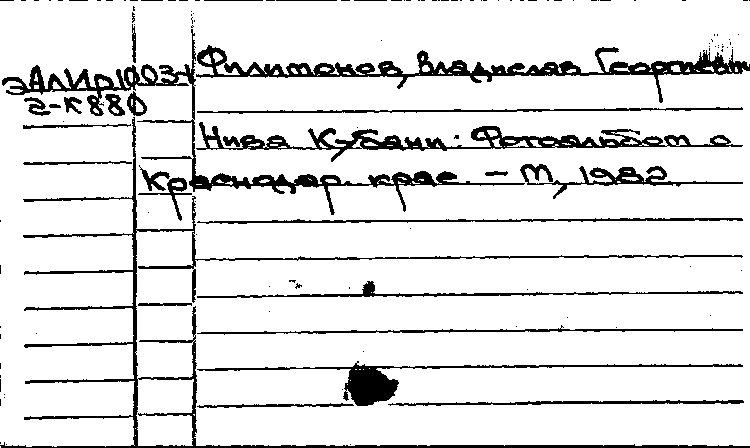 Филимонов, Владислав Георгиевич
2-К880
Нива Кубани: Фотоальбом о
Краснодар. крае. – М., 1982.